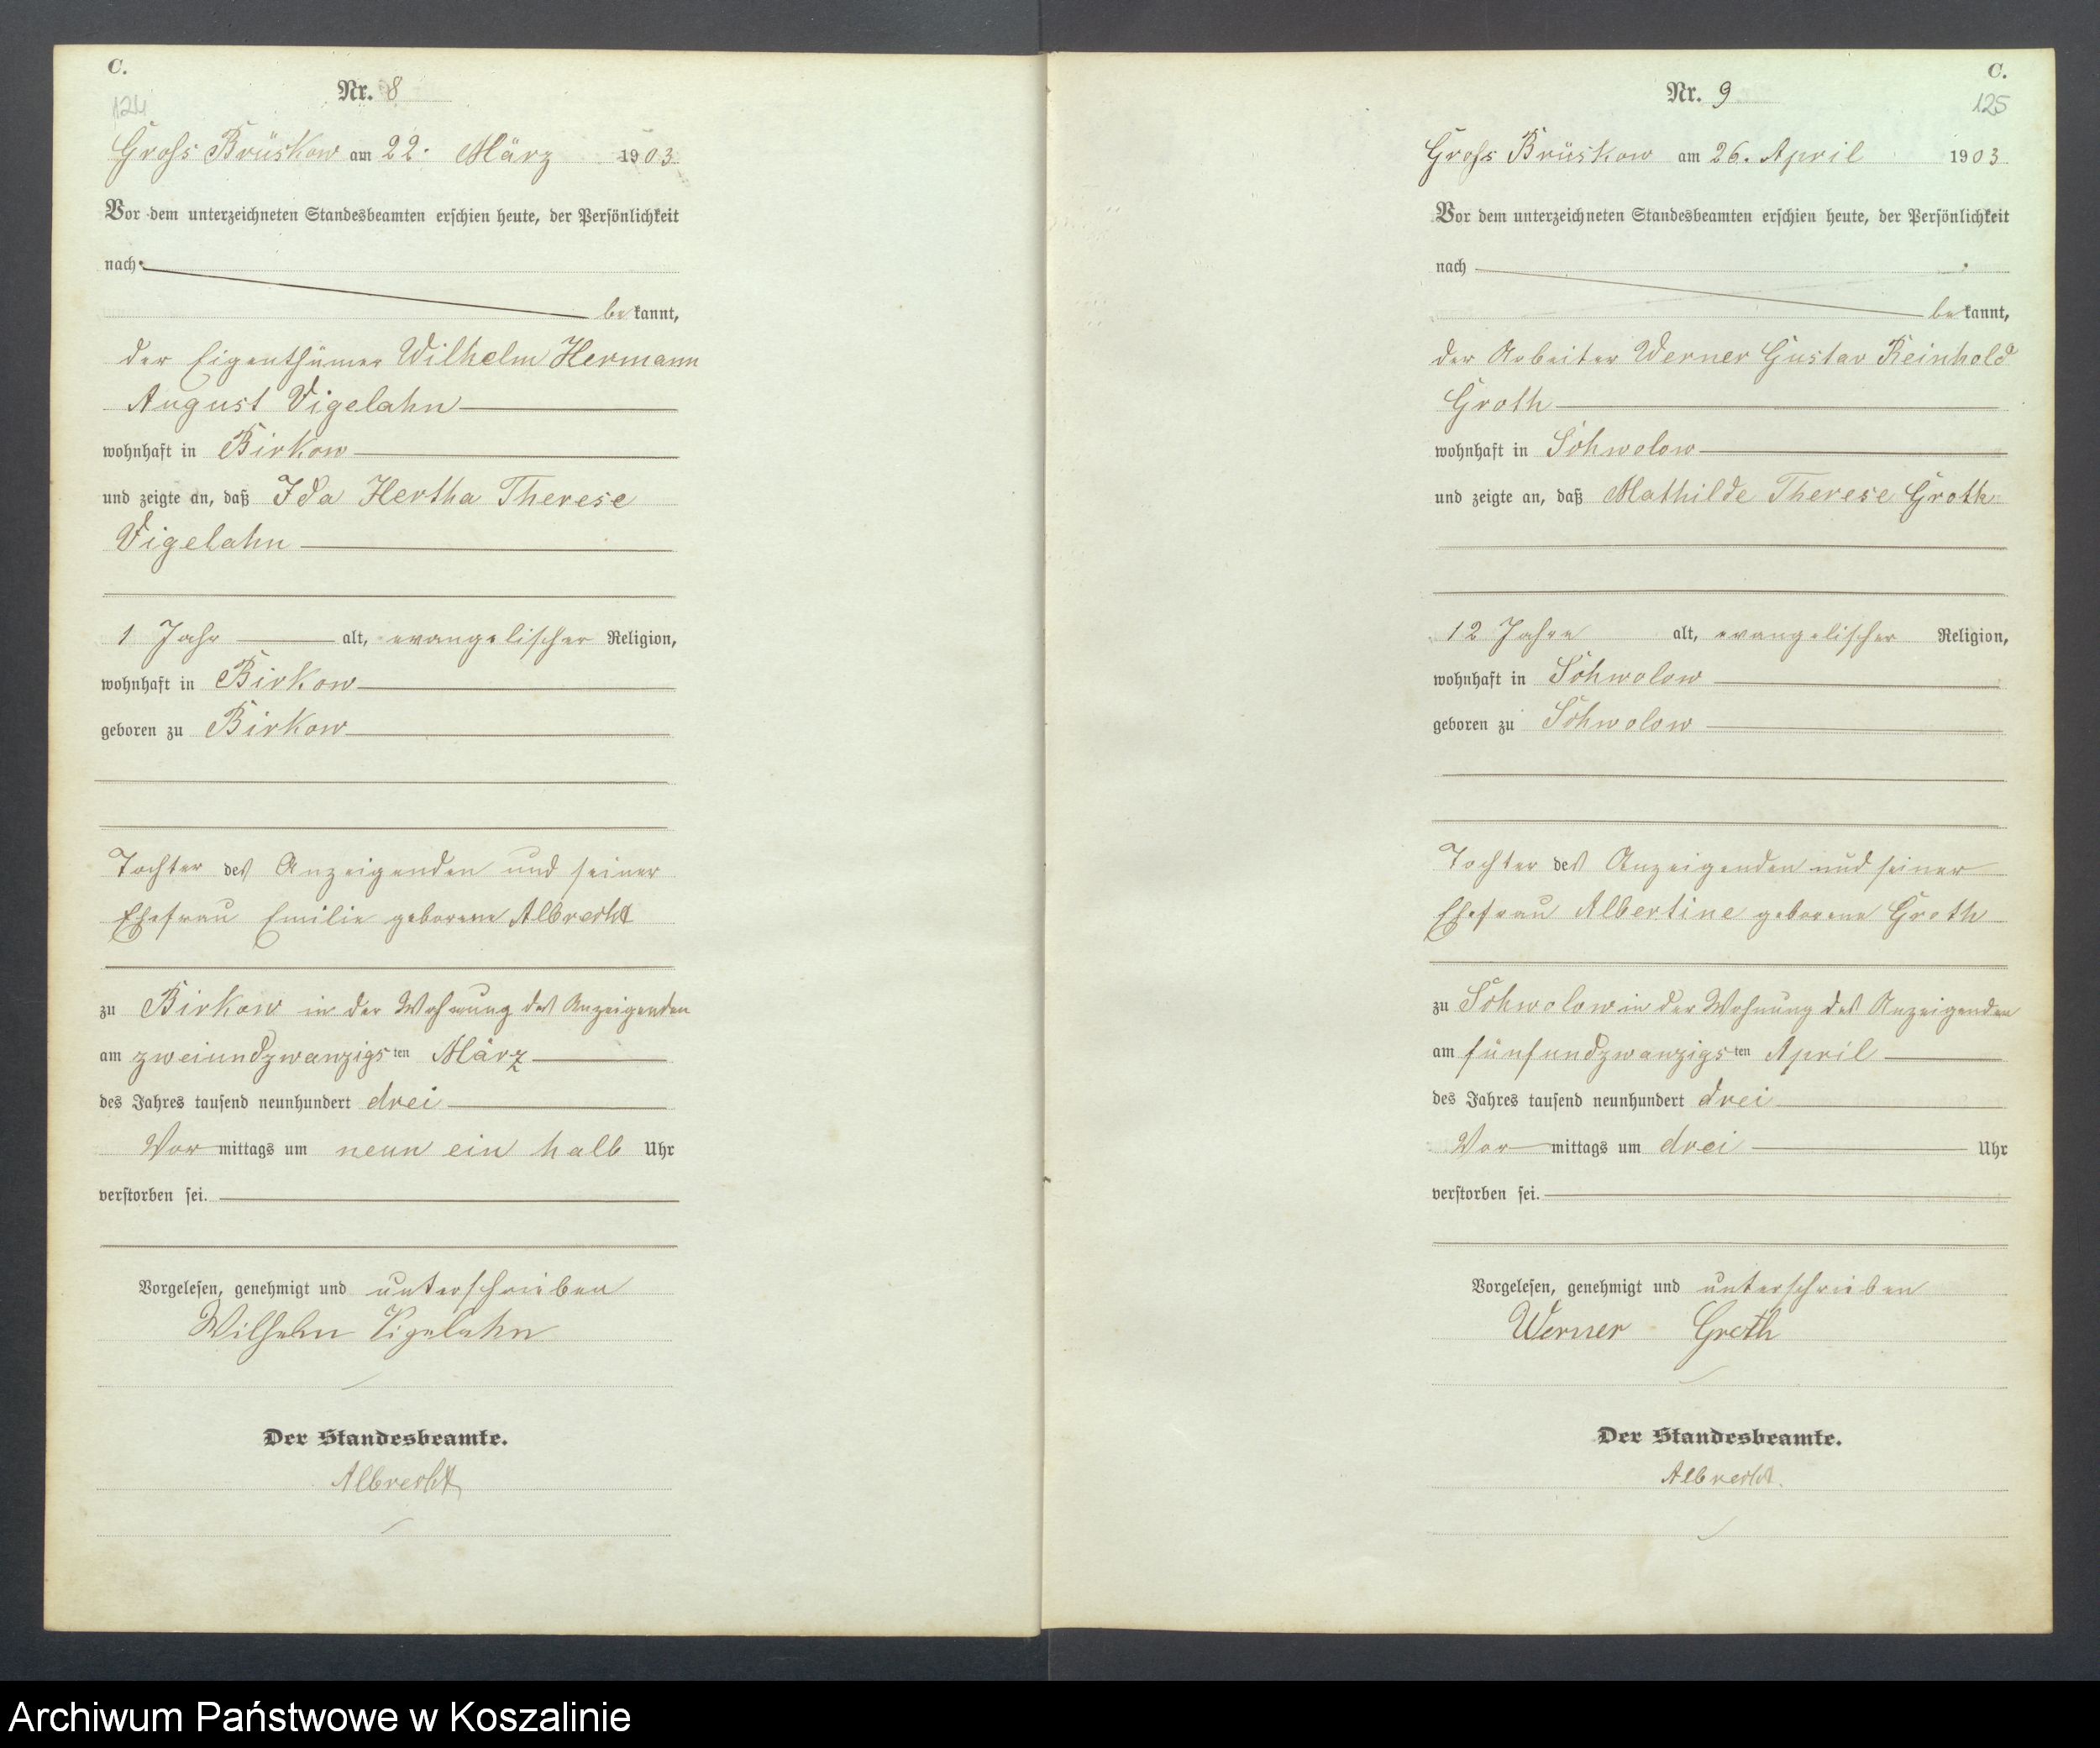 C.
124
Nr. 8
Gross Brüskow am 22. März 1903
Vor dem unterzeichneten Standesbeamten erschien heute, der Persönlichkeit
nach
bekannt,
der Eigenthümer Wilhelm Hermann
August Vigelahn
wohnhaft in Birkow
und zeigte an, daß Ida Hertha Therese
Vigelahn
1 Jahr alt, evangelischer Religion,
wohnhaft in Birkow
geboren zu Birkow
Tochter des Anzeigenden und seiner
Ehefrau Emilie geborene Albrecht
zu Birkow in der Wohnung des Anzeigenden
am zweiundzwanzigsten März
des Jahres tausend neunhundert drei
Vormittags um neun ein halb Uhr
verstorben sei.
Vorgelesen, genehmigt und unterschrieben
Wilhelm Vigelahn
Der Standesbeamte.
Albrecht
C.
125
Nr. 9
Gross Brüskow am 26. April 1903
Vor dem unterzeichneten Standesbeamten erschien heute, der Persönlichkeit
nach
bekannt,
der Arbeiter Werner Gustav Reinhold
Groth
wohnhaft in Schwolow
und zeigte an, daß Mathilde Therese Groth
12 Jahre alt, evangelischer Religion,
wohnhaft in Schwolow
geboren zu Schwolow
Tochter des Anzeigenden und seiner
Ehefrau Albertine geborene Groth
zu Schwolow in der Wohnung des Anzeigenden
am fünfundzwanzigsten April
des Jahres tausend neunhundert drei
Vormittags um drei Uhr
verstorben sei.
Vorgelesen, genehmigt und unterschrieben
Werner Groth
Der Standesbeamte.
Albrecht.
Archiwum Państwowe w Koszalinie